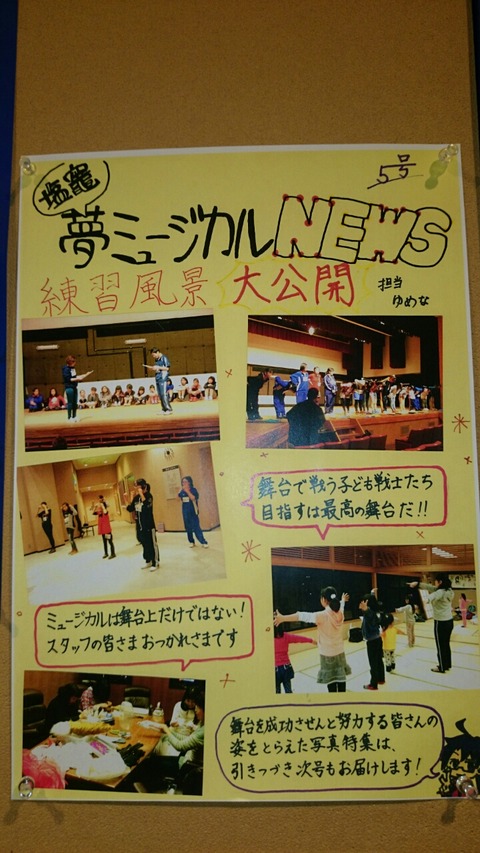 塩竈
5号
夢ミュージカルNEWS
練習風景 大公開
担当
ゆめな
舞台で戦う子ども戦士たち
目指すは最高の舞台だ!!
ミュージカルは舞台上だけではない!
スタッフの皆さまおつかれさまです
舞台を成功させんと努力する皆さんの
姿をとらえた写真特集は、
引きつづき次号もお届けします!